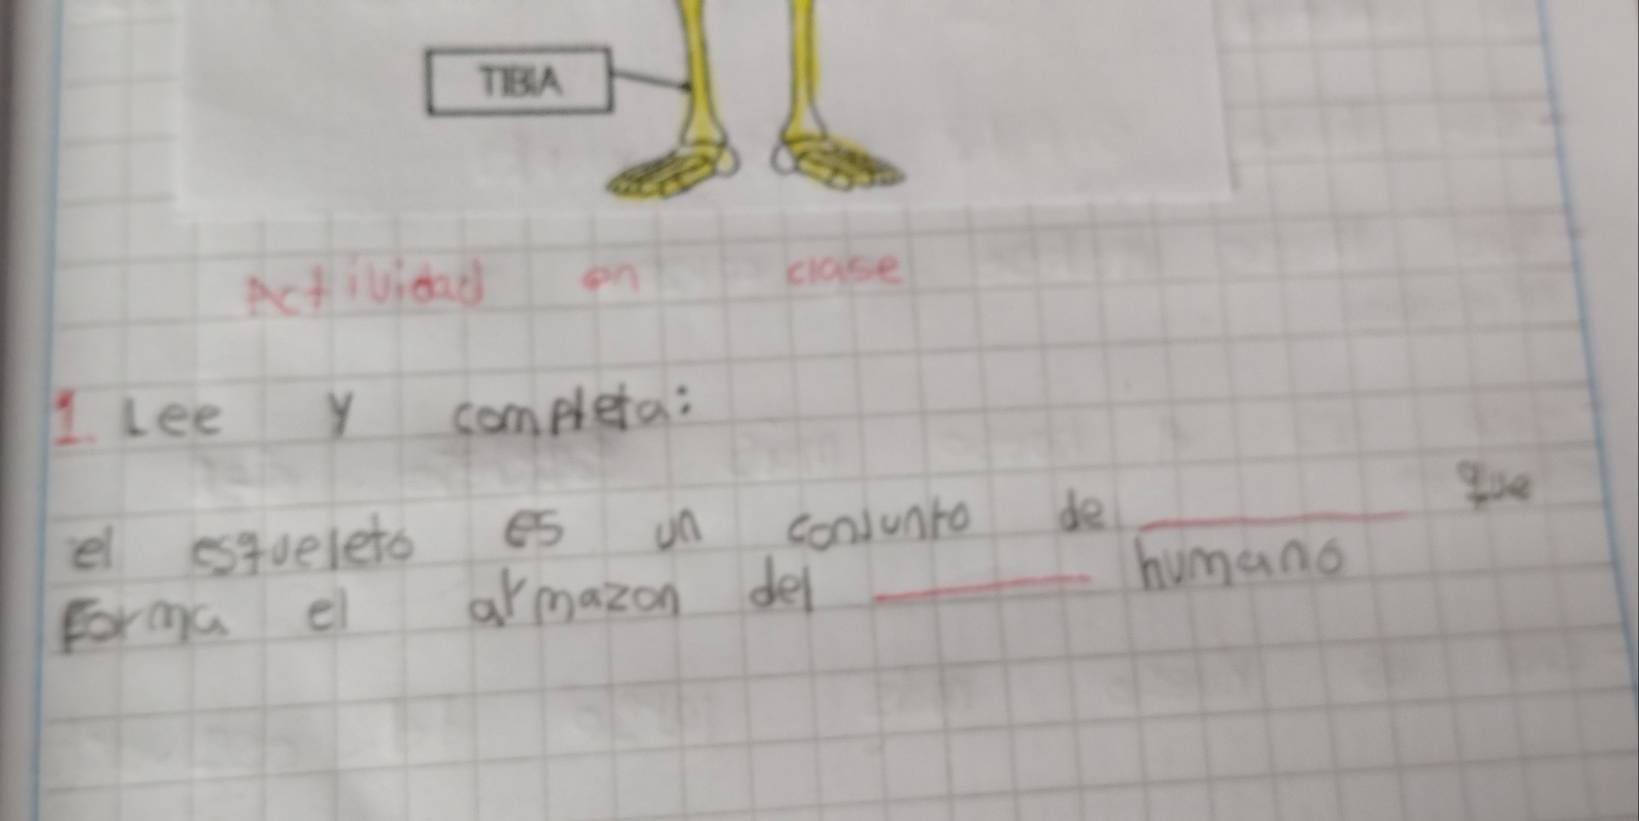 TIBIA
Actividad en clase
1. Lee y completa:
el esqueleto es un conjunto de ________ que
Forma el armazon del ________ humano